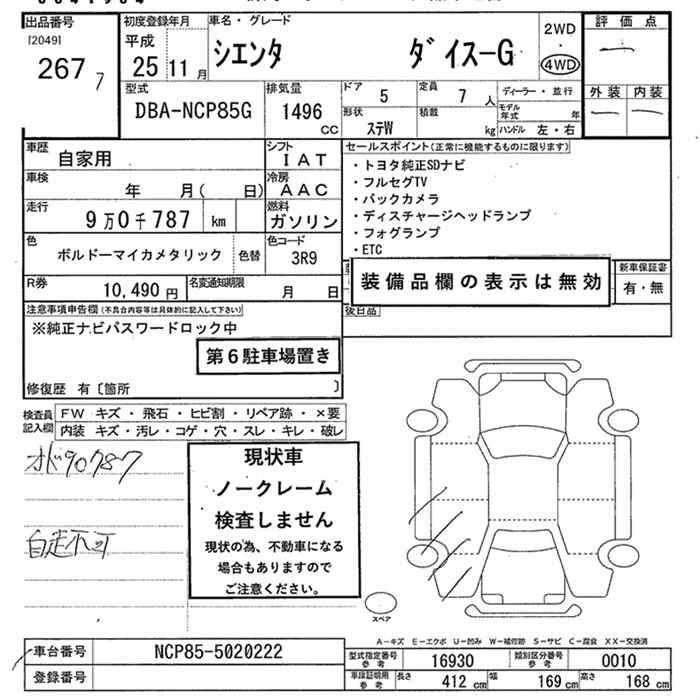 出品番号
[2049]
267 7
初度登録年月
平成
25 11 月
車名・グレード
シエンタ ダイス-G
2WD
・
4WD
評価点
外装 内装
型式
DBA-NCP85G
排気量
1496
cc
ドア 5
定員 7 人
形状 ステW
積載 kg
ディーラー・並行
モデル年式 年
ハンドル 左・右
車歴
自家用
シフト
IAT
車検
年 月( 日)
冷房
AAC
走行
9万0千787 km
燃料
ガソリン
色
ボルドーマイカメタリック
色替
色コード
3R9
R券
10,490 円
名変通知期限
月 日
セールスポイント(正常に機能するものに限ります)
・トヨタ純正SDナビ
・フルセグTV
・バックカメラ
・ディスチャージヘッドランプ
・フォグランプ
・ETC
装備品欄の表示は無効
新車保証書
有・無
後日品
注意事項申告欄(不具合内容等は具体的に記入して下さい)
※純正ナビパスワードロック中
第6駐車場置き
修復歴 有〔箇所 〕
検査員記入欄
FW キズ・飛石・ヒビ割・リペア跡・×要
内装 キズ・汚レ・コゲ・穴・スレ・キレ・破レ
オド90787
自走不可
現状車
ノークレーム
検査しません
現状の為、不動車になる
場合もありますので
ご注意ください。
スペア
A-キズ E-エクボ U-凹み W-補修跡 S-サビ C-腐食 XX-交換済
車台番号
NCP85-5020222
登録番号
型式指定番号参考
16930
類別区分番号参考
0010
車庫証明用参考
長さ 412 cm
幅 169 cm
高さ 168 cm